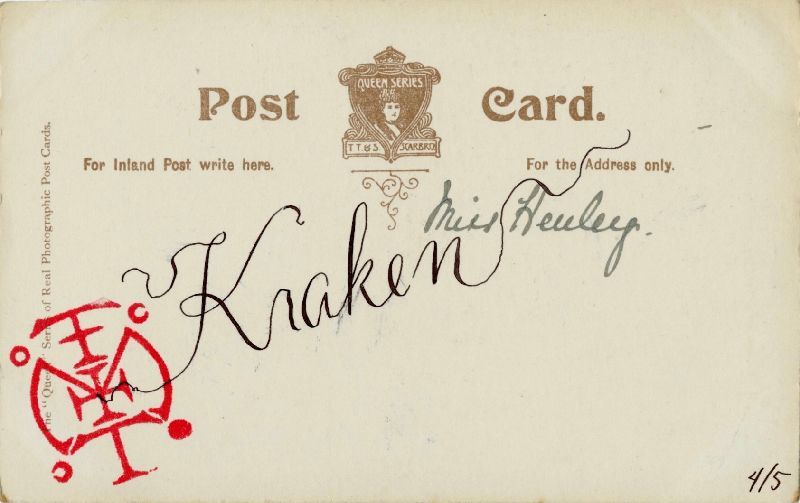 Post Card.
QUEEN SERIES
T.T.&S. SCARBRO
For Inland Post write here.
For the Address only.
Miss Henley.
Kraken
The "Queen" Series of Real Photographic Post Cards.
4/5